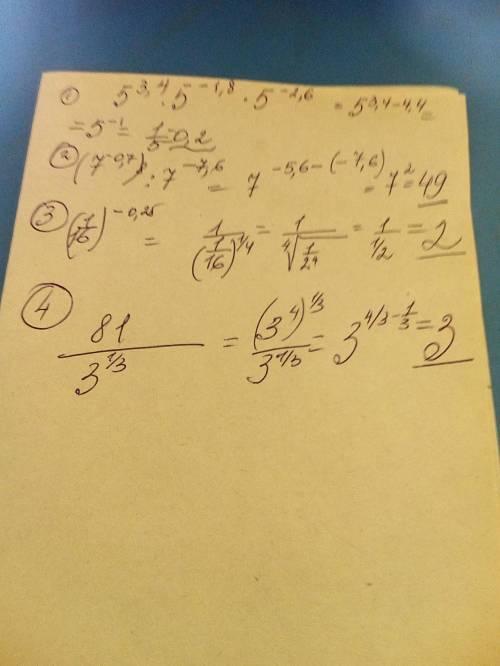 ① 5^3,4 · 5^-1,8 · 5^-2,6 = 5^3,4-4,4 =
= 5^-1 = 1/5 = 0,2
② (7^-0,7)^8 : 7^-7,6 = 7^-5,6-(-7,6) = 7^2 = 49
③ (1/16)^-0,25 = 1/(1/16)^1/4 = 1/⁴√(1/2⁴) = 1/1/2 = 2
④ 81/3^1/3 = (3^4)^1/3/3^1/3 = 3^4/3-1/3 = 3